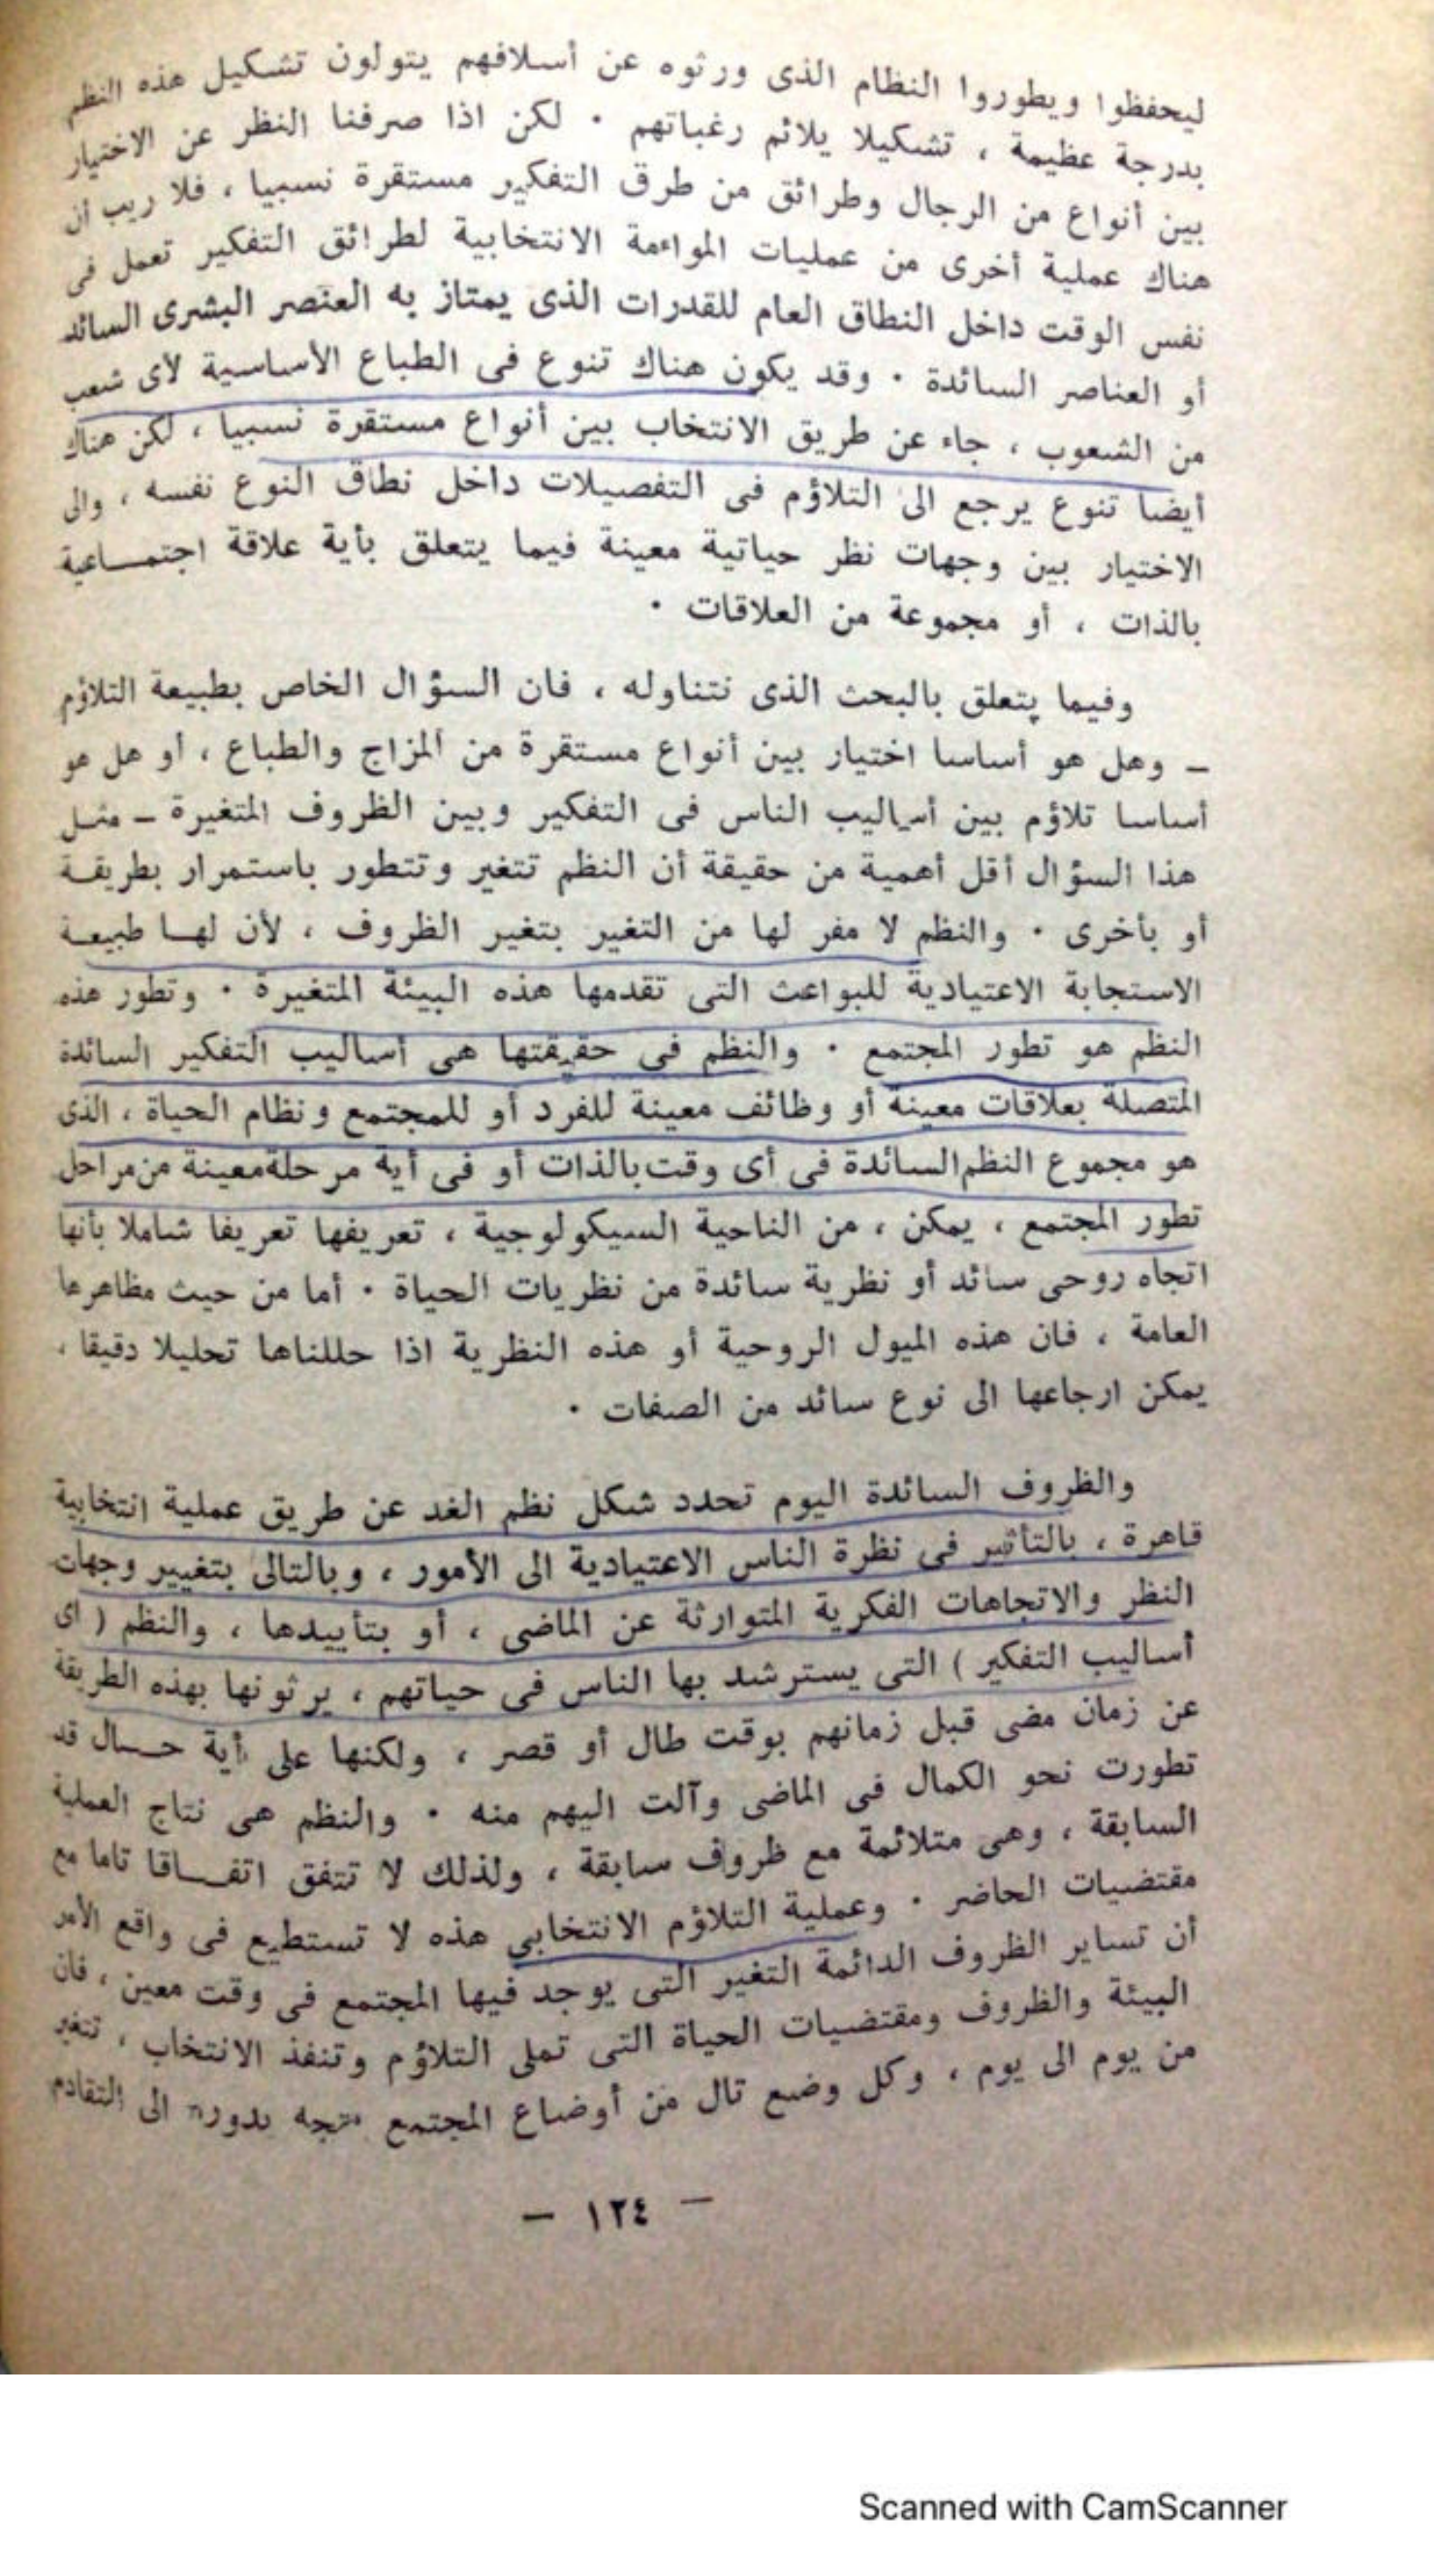 ليحفظوا ويطوروا النظام الذى ورثوه عن أسلافهم يتولون تشكيل هذه النظم
بدرجة عظيمة ، تشكيلا يلائم رغباتهم . لكن اذا صرفنا النظر عن الاختيار
بين أنواع من الرجال وطرائق من طرق التفكير مستقرة نسبيا ، فلا ريب أن
هناك عملية أخرى من عمليات المواءمة الانتخابية لطرائق التفكير تعمل فى
نفس الوقت داخل النطاق العام للقدرات الذى يمتاز به العنصر البشرى السائد
أو العناصر السائدة . وقد يكون هناك تنوع فى الطباع الأساسية لأى شعب
من الشعوب ، جاء عن طريق الانتخاب بين أنواع مستقرة نسبيا ، لكن هناك
أيضا تنوع يرجع الى التلاؤم فى التفصيلات داخل نطاق النوع نفسه ، والى
الاختيار بين وجهات نظر حياتية معينة فيما يتعلق بأية علاقة اجتمـــاعية
بالذات ، أو مجموعة من العلاقات .
وفيما يتعلق بالبحث الذى نتناوله ، فان السؤال الخاص بطبيعة التلاؤم
– وهل هو أساسا اختيار بين أنواع مستقرة من المزاج والطباع ، أو هل هو
أساسا تلاؤم بين أساليب الناس فى التفكير وبين الظروف المتغيرة – مثـل
هذا السؤال أقل أهمية من حقيقة أن النظم تتغير وتتطور باستمرار بطريقـة
أو بأخرى . والنظم لا مفر لها من التغير بتغير الظروف ، لأن لهـا طبيعـة
الاستجابة الاعتيادية للبواعث التى تقدمها هذه البيئة المتغيرة . وتطور هذه
النظم هو تطور المجتمع . والنظم فى حقيقتها هى أساليب التفكير السائدة
المتصلة بعلاقات معينة أو وظائف معينة للفرد أو للمجتمع ونظام الحياة ، الذى
هو مجموع النظم السائدة فى أى وقت بالذات أو فى أية مرحلة معينة من مراحل
تطور المجتمع ، يمكن ، من الناحية السيكولوجية ، تعريفها تعريفا شاملا بأنها
اتجاه روحى سائد أو نظرية سائدة من نظريات الحياة . أما من حيث مظاهرها
العامة ، فان هذه الميول الروحية أو هذه النظرية اذا حللناها تحليلا دقيقا ،
يمكن ارجاعها الى نوع سائد من الصفات .
والظروف السائدة اليوم تحدد شكل نظم الغد عن طريق عملية انتخابية
قاهرة ، بالتأثير فى نظرة الناس الاعتيادية الى الأمور ، وبالتالى بتغيير وجهات
النظر والاتجاهات الفكرية المتوارثة عن الماضى ، أو بتأييدها ، والنظم ( أى
أساليب التفكير ) التى يسترشد بها الناس فى حياتهم ، يرثونها بهذه الطريقة
عن زمان مضى قبل زمانهم بوقت طال أو قصر ، ولكنها على أية حـــال قد
تطورت نحو الكمال فى الماضى وآلت اليهم منه . والنظم هى نتاج العملية
السابقة ، وهى متلائمة مع ظروف سابقة ، ولذلك لا تتفق اتفـــاقا تاما مع
مقتضيات الحاضر . وعملية التلاؤم الانتخابى هذه لا تستطيع فى واقع الأمر
أن تساير الظروف الدائمة التغير التى يوجد فيها المجتمع فى وقت معين ، فان
البيئة والظروف ومقتضيات الحياة التى تملى التلاؤم وتنفذ الانتخاب ، تتغير
من يوم الى يوم ، وكل وضع تال من أوضاع المجتمع يتجه بدوره الى التقادم
– ١٢٤ –
Scanned with CamScanner